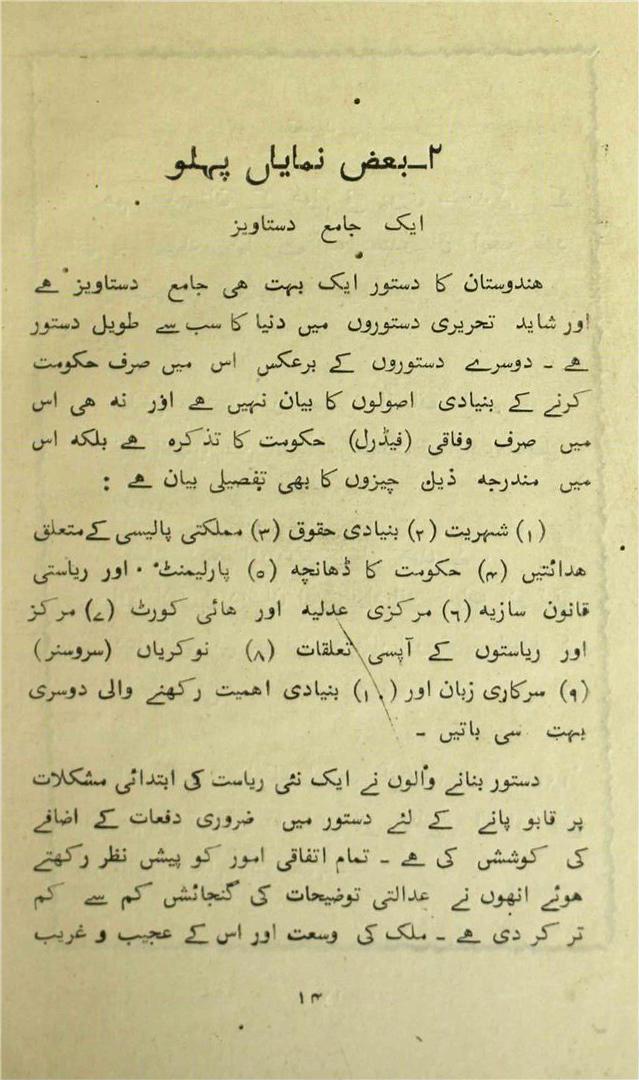 ۲ـبعض نمایاں پہلو
ایک جامع دستاویز
ھندوستان کا دستور ایک بہت ھی جامع دستاویز ھے
اور شاید تحریری دستوروں میں دنیا کا سب سے طویل دستور
ھے ـ دوسرے دستوروں کے برعکس اس میں صرف حکومت
کرنے کے بنیادی اصولوں کا بیان نہیں ھے اور نہ ھی اس
میں صرف وفاقی (فیڈرل) حکومت کا تذکرہ ھے بلکہ اس
میں مندرجہ ذیل چیزوں کا بھی تفصیلی بیان ھے :
(۱) شہریت (۲) بنیادی حقوق (۳) مملکتی پالیسی کے متعلق
ھدائتیں (۴) حکومت کا ڈھانچہ (۵) پارلیمنٹ اور ریاستی
قانون سازیہ (۶) مرکزی عدلیہ اور ھائی کورٹ (۷) مرکز
اور ریاستوں کے آپسی تعلقات (۸) نوکریاں (سروسنر)
(۹) سرکاری زبان اور (۱۰) بنیادی اھمیت رکھنے والی دوسری
بہت سی باتیں ـ
دستور بنانے والوں نے ایک نئی ریاست کی ابتدائی مشکلات
پر قابو پانے کے لئے دستور میں ضروری دفعات کے اضافے
کی کوشش کی ھے ـ تمام اتفاقی امور کو پیش نظر رکھتے
ھوئے انھوں نے عدالتی توضیحات کی گنجائش کم سے کم
تر کر دی ھے ـ ملک کی وسعت اور اس کے عجیب و غریب
۱۴